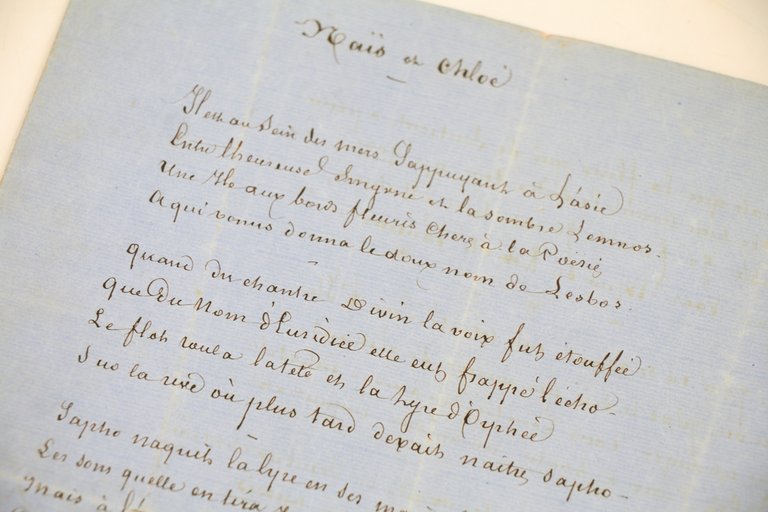 Naïs et Chloé
Il est au sein des mers S'appuyant à L'asie
Entre l'heureuse Smyrne et la sombre Lemnos.
Une Ile aux bords fleuris chers à la Poésie,
A qui venus donna le doux nom de Lesbos.
quand du chantre Divin la voix fut étouffée
que du Nom d'Euridice elle eut frappé l'écho-
Le flot roula la tête et la lyre d'Orphée
Sur la rive où plus tard devait naitre sapho-
Sapho naquit la lyre en ses
Les sons quelle en tira
Mais à